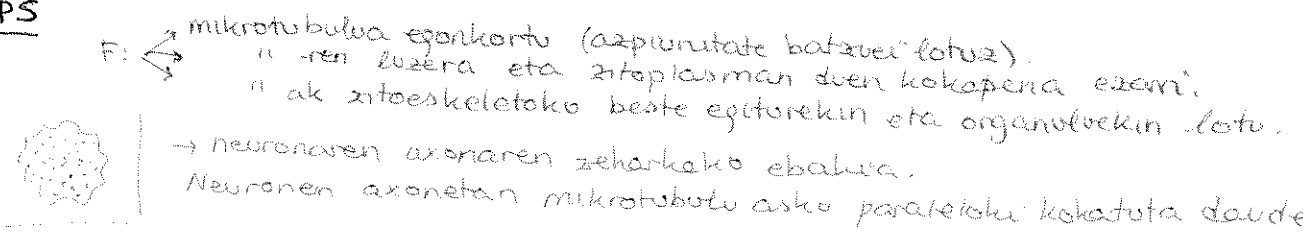 PS
F: mikrotubulua egonkortu (azpiunitate batzuei lotuz).
" -ren luzera eta zitoplasman duen kokapena ezarri.
" ak zitoeskeletoko beste egiturekin eta organuluekin lotu.
→ neuronaren axonaren zeharkako ebakia.
Neuronen axonetan mikrotubulu asko paraleloki kokatuta daude